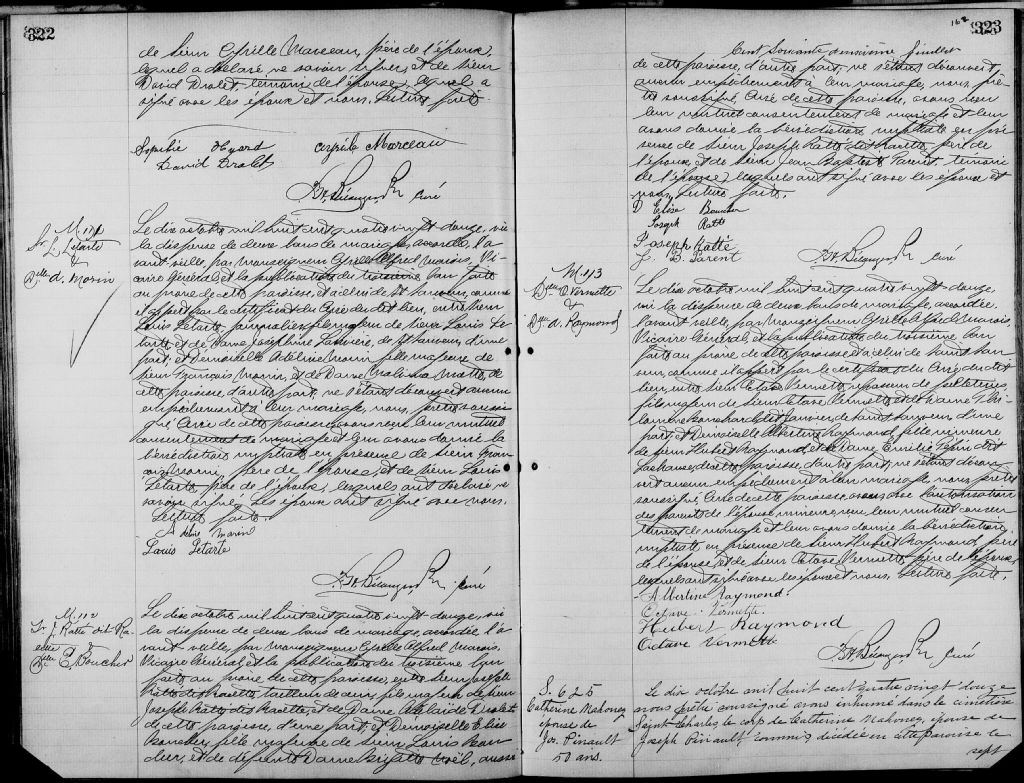 322
de Sieur Cyrille Marceau, père de l'époux,
lequel a déclaré ne savoir signer, et de Sieur
David Drolet, témoin de l'épouse, lequel a
signé avec les époux et nous. Lecture faite.
Cyrile Marceau
David Drolet
curé
M. 111
Sr. L. Letarte
&
Dlle A. Morin
Le dix octobre mil huit cent quatre vingt douze, vu
la dispense de deux bans de mariage, accordée l'a-
vant veille, par Monseigneur Cyrille Alfred Marois, Vi-
caire Général, et la publication du troisième ban faite
au prône de cette paroisse, et à celui de St Sauveur, comme
il appert par le certificat du Curé du dit lieu, entre Sieur
Louis Letarte, journalier, fils majeur de Sieur Louis Le-
tarte et de Dame Josephine de St Sauveur, d'une
part, et Demoiselle Adeline Morin, fille majeure de
Sieur François Morin, et de Dame Matte, de
cette paroisse d'autre part, ne s'étant découvert aucun
empêchement à leur mariage, nous, prêtre soussi-
gné, Curé de cette paroisse, avons reçu leur mutuel
consentement de mariage et leur avons donné la
bénédiction nuptiale en présence de Sieur Fran-
çois Morin, père de l'épouse, et de Sieur Louis
Letarte, père de l'époux, lesquels ont déclaré ne
savoir signer. Les époux ont signé avec nous.
Lecture faite.
Adeline Morin
Louis Letarte
curé
M. 112
Sr. J. Ratté dit Ra-
&
Dlle E. Boucher
Le dix octobre mil huit cent quatre vingt douze, vu
la dispense de deux bans de mariage, accordée l'a-
vant veille, par Monseigneur Cyrille Alfred Marois,
Vicaire Général et la publication du troisième ban
faite au prône de cette paroisse, entre Sieur Joseph
Ratté dit tailleur de cuir, fils majeur de Sieur
Joseph Ratté dit et de Dame Adelaide Drolet
de cette paroisse, d'une part, et Demoiselle Elise
Boucher, fille majeure de Sieur Louis Bou-
cher, et de défunte Dame Brigitte Noël, aussi
162
323
Cent Soixante deuxième feuillet
de cette paroisse, d'autre part, ne s'étant découvert
aucun empêchement à leur mariage, nous, prê-
tre soussigné, Curé de cette paroisse, avons reçu
leur mutuel consentement de mariage et leur
avons donné la bénédiction nuptiale en pré-
sence de Sieur Joseph Ratté dit père de
l'époux, et de Sieur Jean Baptiste Parent, témoin
de l'épouse, lesquels ont signé avec les époux et
nous. Lecture faite.
Elise Boucher
Joseph Ratté
Joseph Ratté
J. B. Parent
curé
M. 113
O. Vermette
&
Dlle A. Raymond
Le dix octobre mil huit cent quatre vingt douze,
vu la dispense de deux bans de mariage, accordée
l'avant veille, par Monseigneur Cyrille Alfred Marois,
Vicaire Général, et la publication du troisième ban
faite au prône de cette paroisse et à celui de Saint Sau-
veur, comme il appert par le certificat du Curé du dit
lieu, entre Sieur Octave Vermette, repasseur de pelleteries,
fils majeur de Sieur Octave Vermette et de Dame Phi-
lomène de Saint Sauveur d'une
part, et Demoiselle Albertine Raymond, fille mineure
de Sieur Hubert Raymond et de Dame Emélie dit
de cette paroisse d'autre part, ne s'étant décou-
vert aucun empêchement à leur mariage, nous, prêtre
soussigné, Curé de cette paroisse, avons avec l'autorisation
des parents de l'épouse mineure, reçu leur mutuel consen-
tement de mariage et leur avons donné la bénédiction
nuptiale en présence de Sieur Hubert Raymond, père
de l'épouse, et de Sieur Octave Vermette, père de l'époux,
lesquels ont signé avec les époux et nous. Lecture faite.
Albertine Raymond.
Octave Vermette.
Hubert Raymond
Octave Vermette
curé
S. 625
Catherine Mahoney
épouse de
Jos. Pinault
50 ans.
Le dix octobre mil huit cent quatre vingt douze
nous prêtre soussigné avons inhumé dans le cimetière
Saint Charles le corps de Catherine Mahoney, épouse de
Joseph Pinault, commis, décédée en cette paroisse le
sept